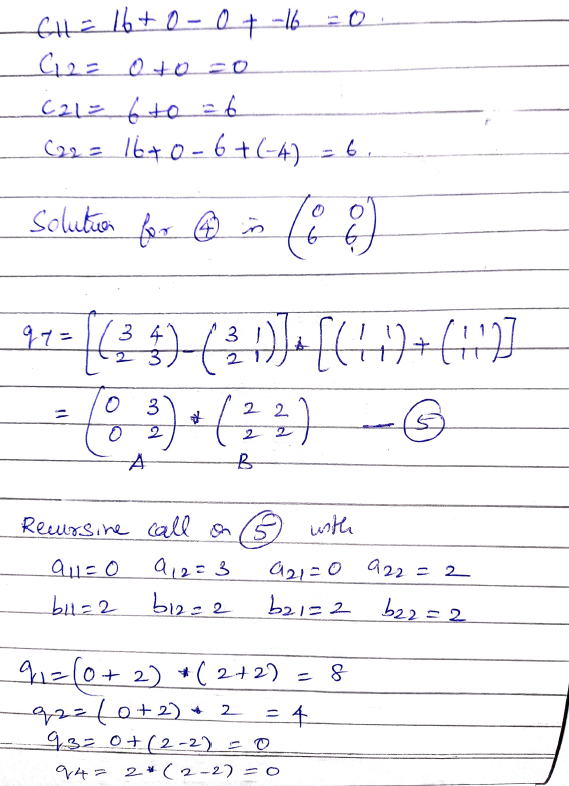 C11 = 16 + 0 - 0 + -16 = 0.
C12 = 0 + 0 = 0
C21 = 6 + 0 = 6
C22 = 16 + 0 - 6 + (-4) = 6.
Solution for ④ is (0 0
6 6)
q7 = [(3 4
2 3) - (3 1
2 1)] * [(1 1
1 1) + (1 1
1 1)]
= (0 3
0 2) * (2 2
2 2) — ⑤
A B
Recursive call on ⑤ with
a11 = 0 a12 = 3 a21 = 0 a22 = 2
b11 = 2 b12 = 2 b21 = 2 b22 = 2
q1 = (0 + 2) * (2 + 2) = 8
q2 = (0 + 2) * 2 = 4
q3 = 0 + (2 - 2) = 0
q4 = 2 * (2 - 2) = 0